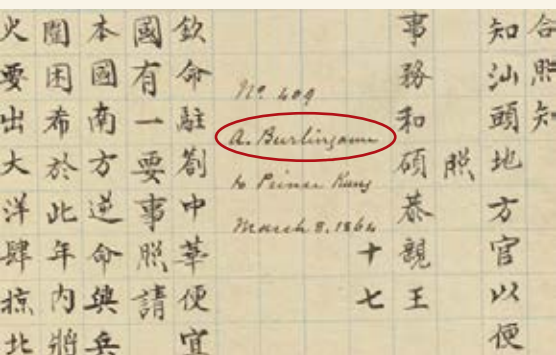 合照知
知汕頭地方官以便
照
事務和碩恭親王
十七
No. 409
A. Burlingame
to Prince Kung
March 8. 1864
欽命駐劄中華便宜
國有一要事照請
本國南方逆命興兵
圍困希於此年內將
火要出大洋肆掠北